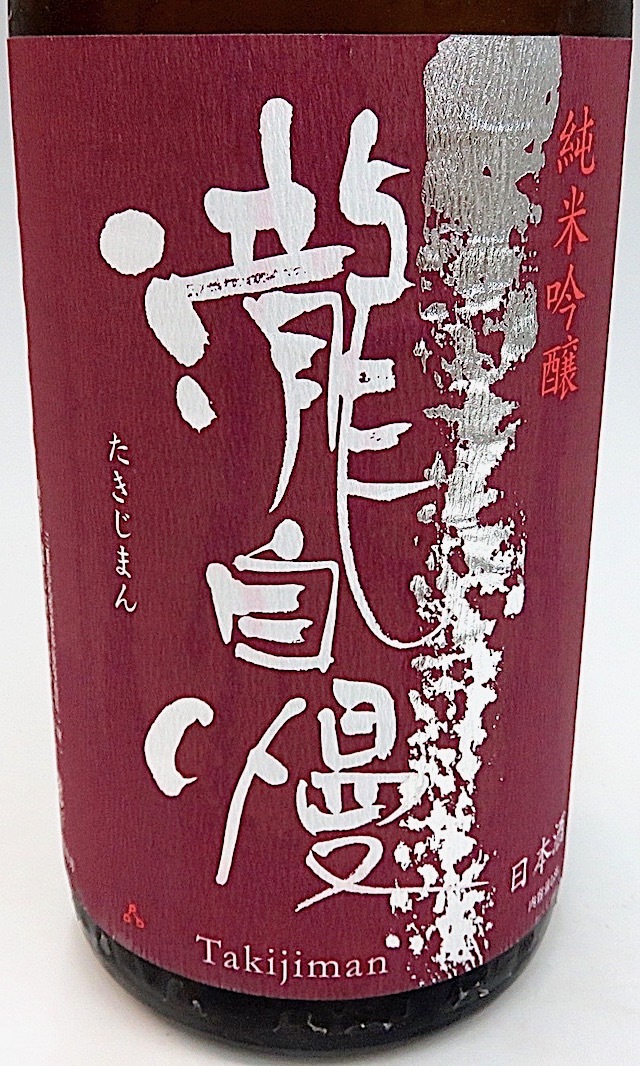 純米吟醸
瀧自慢
たきじまん
日本酒
Takijiman